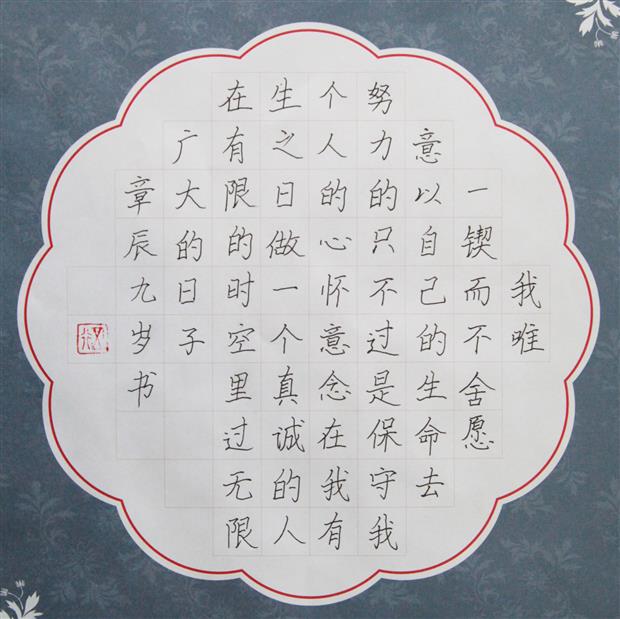 我唯
一锲而不舍愿
意以自己的生命去
努力的只不过是保守我
个人的心怀意念在我有
生之日做一个真诚的人
在有限的时空里过无限
广大的日子
章辰九岁书